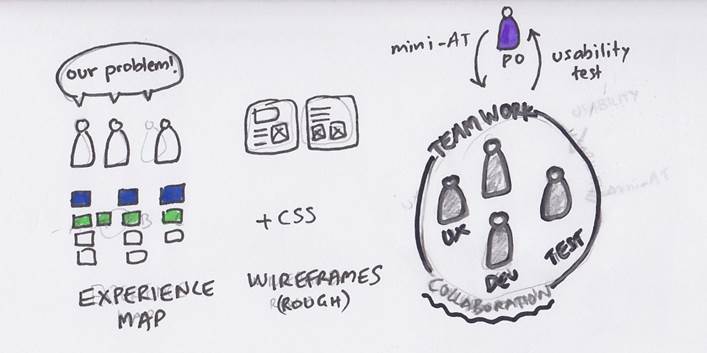 our problem!
EXPERIENCE
MAP
+ CSS
WIREFRAMES
(ROUGH)
mini-AT
PO
usability
test
TEAMWORK
UX
DEV
TEST
COLLABORATION